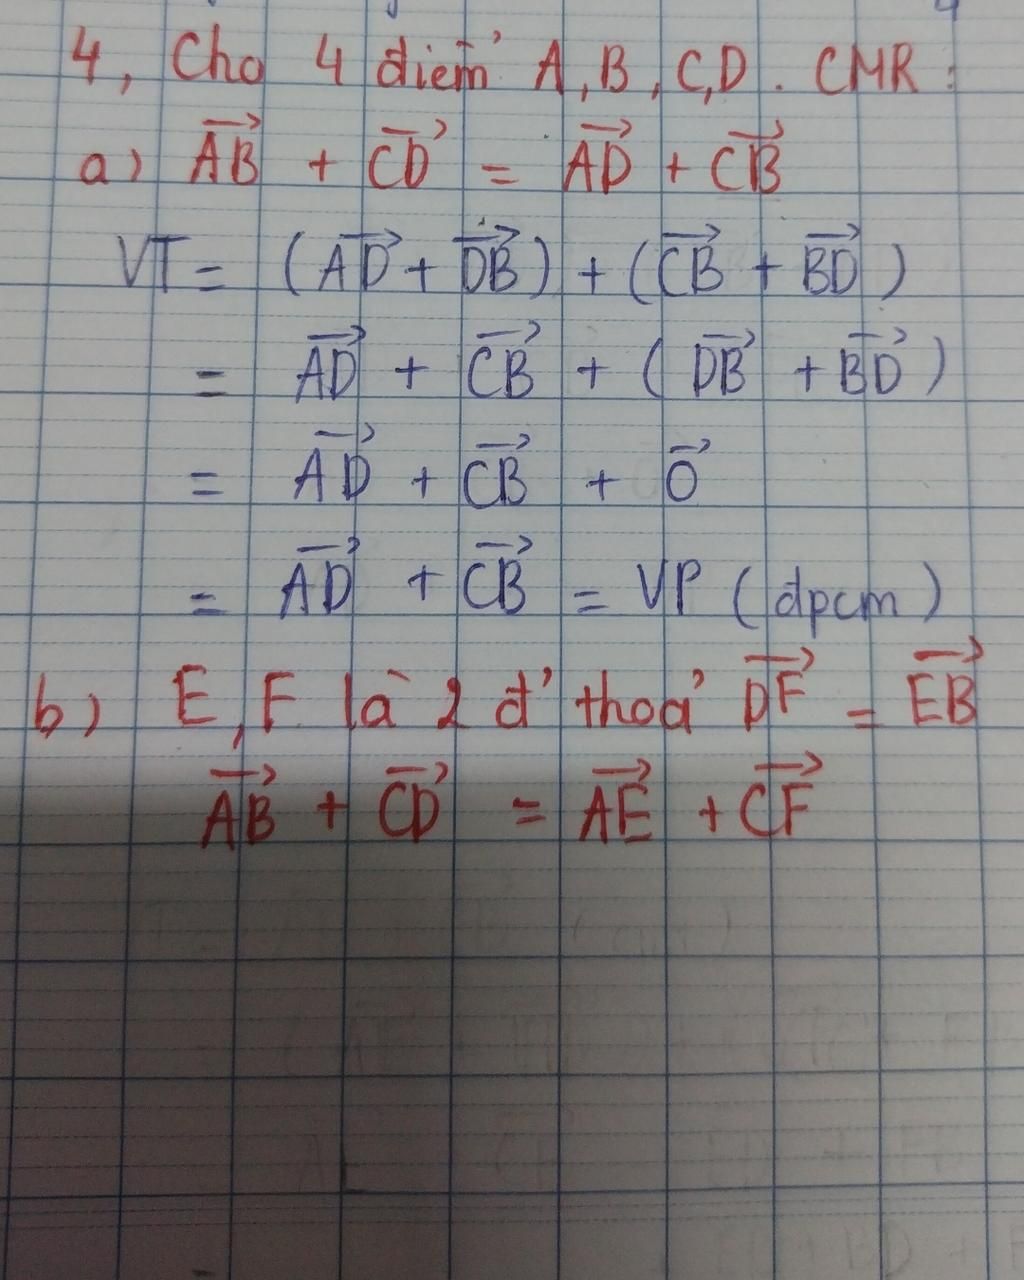 4, Cho 4 điểm A, B, C, D. CMR:
a) \overrightarrow{AB} + \overrightarrow{CD} = \overrightarrow{AD} + \overrightarrow{CB}
VT = (\overrightarrow{AD} + \overrightarrow{DB}) + (\overrightarrow{CB} + \overrightarrow{BD})
= \overrightarrow{AD} + \overrightarrow{CB} + (\overrightarrow{DB} + \overrightarrow{BD})
= \overrightarrow{AD} + \overrightarrow{CB} + \overrightarrow{0}
= \overrightarrow{AD} + \overrightarrow{CB} = VP (đpcm)
b) E, F là 2 đ' thoả \overrightarrow{DF} = \overrightarrow{EB}
\overrightarrow{AB} + \overrightarrow{CD} = \overrightarrow{AE} + \overrightarrow{CF}